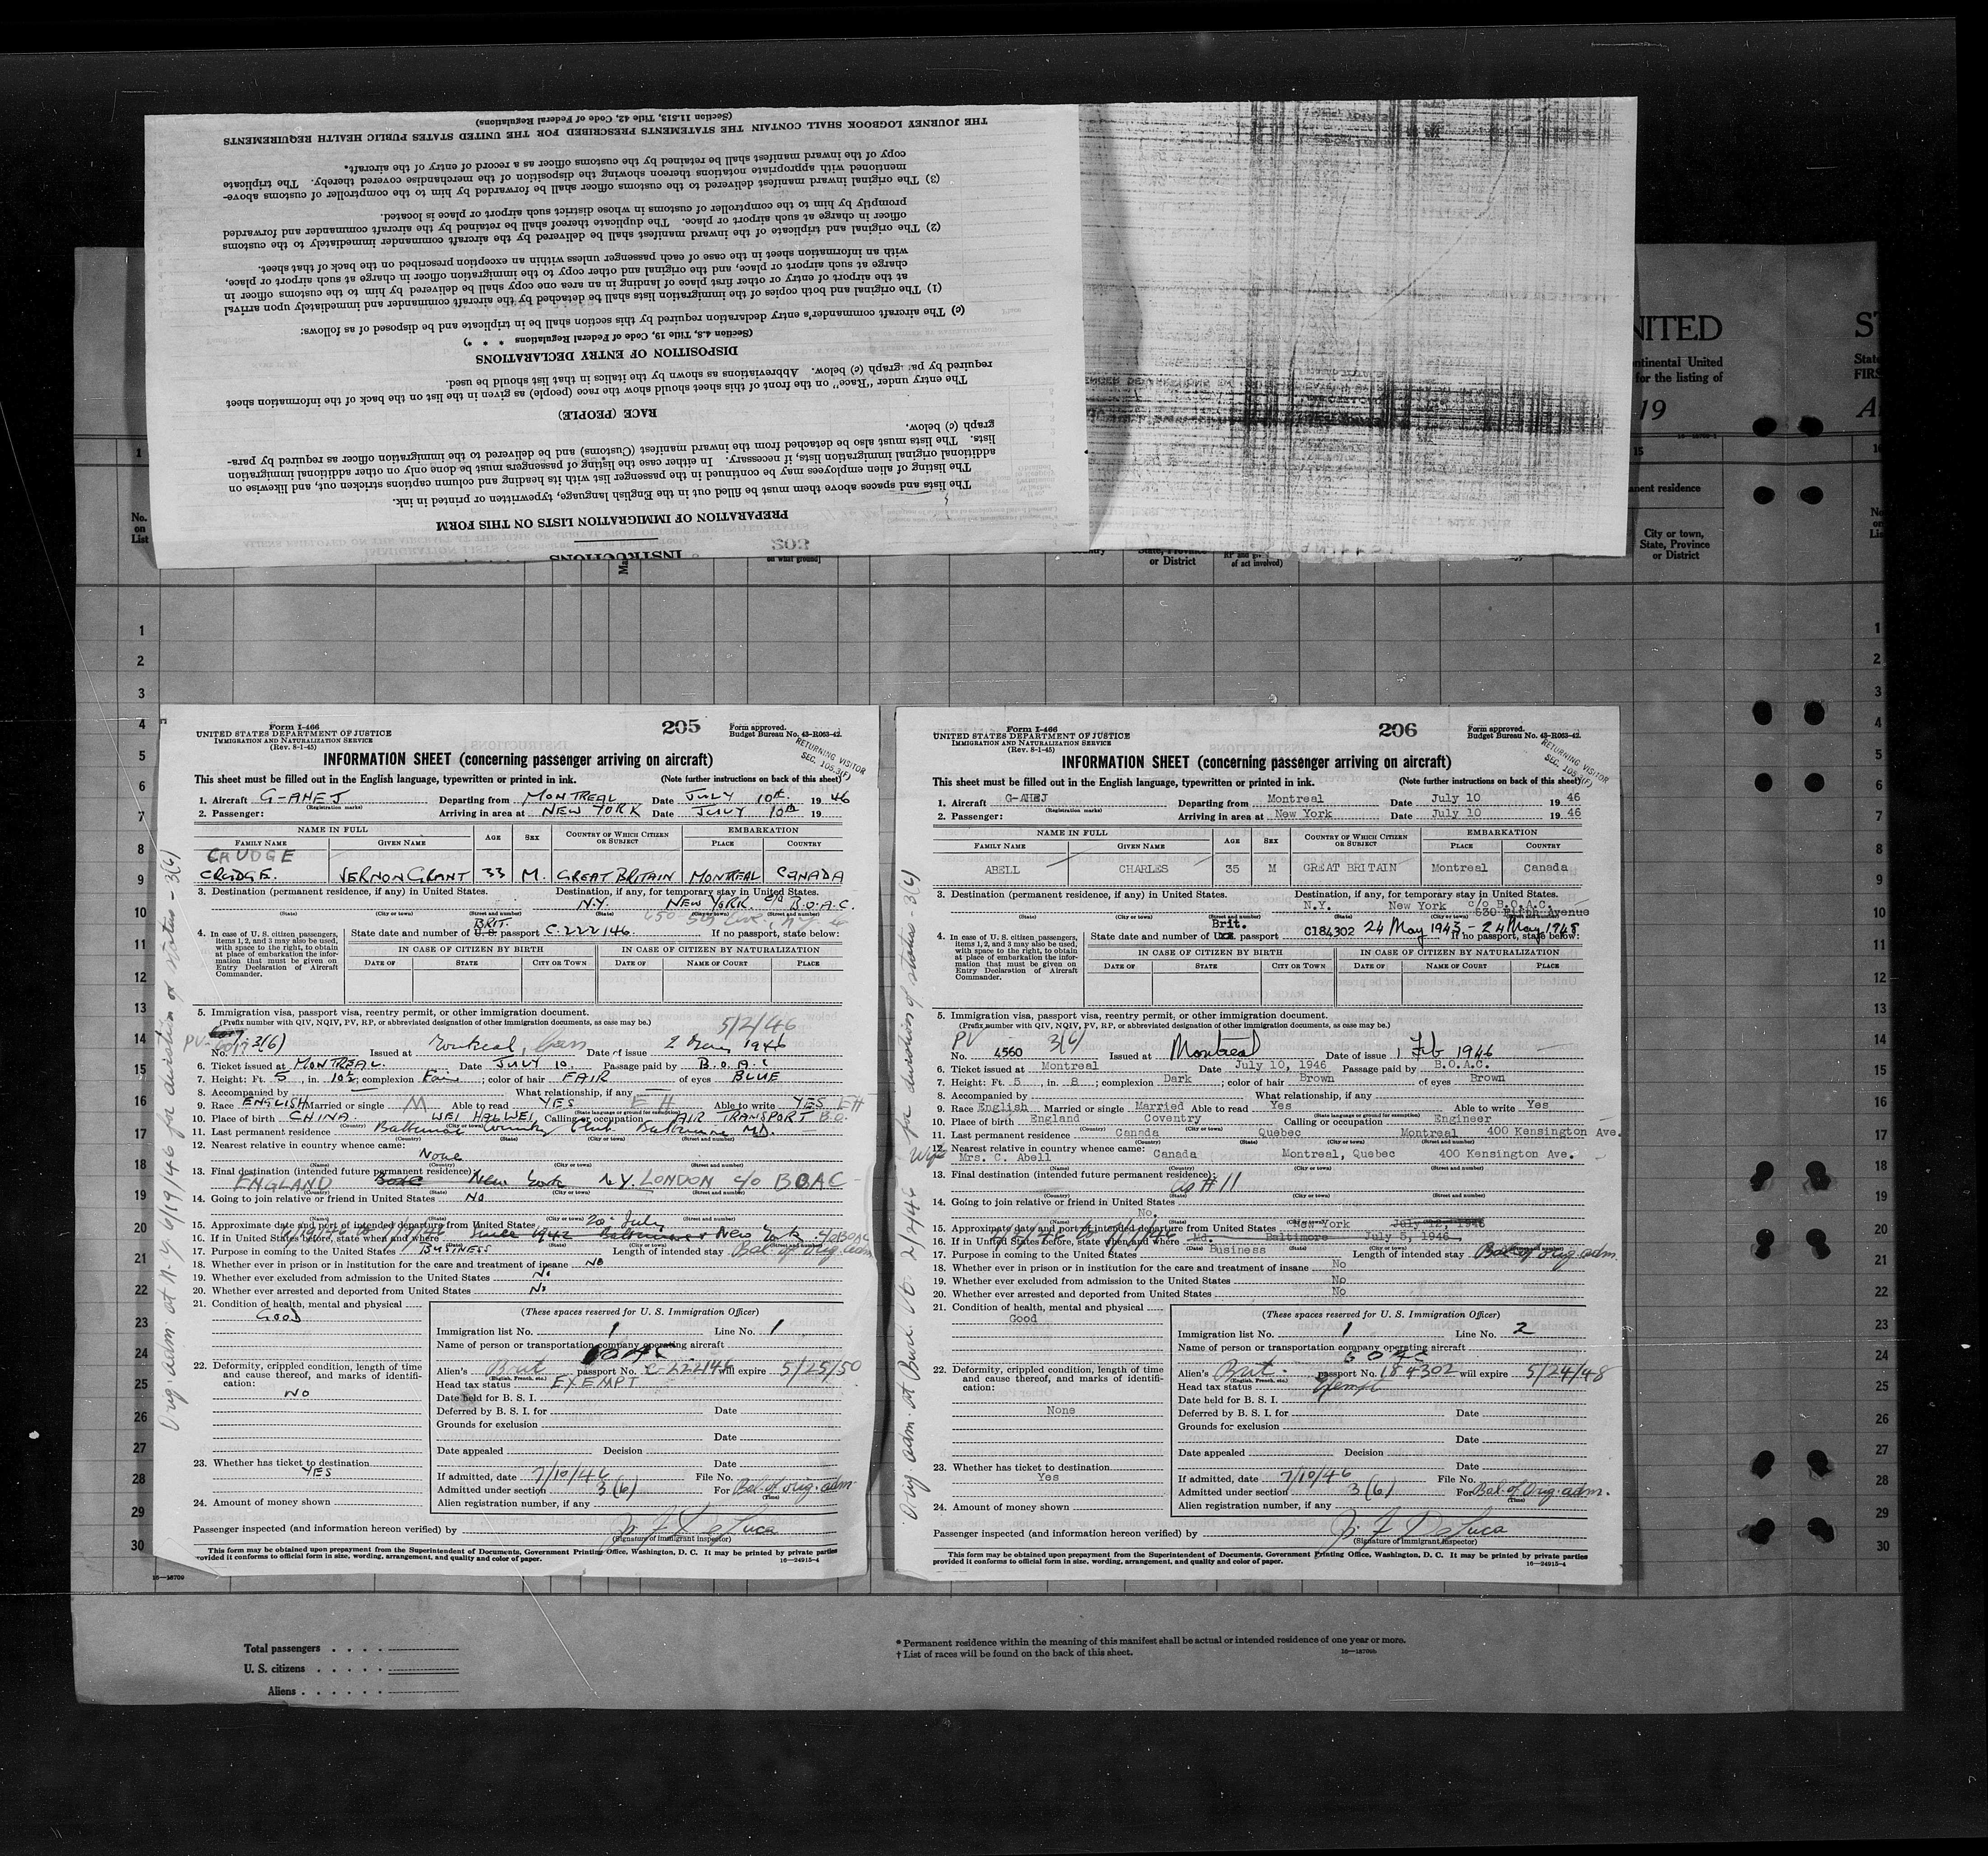 THE JOURNEY LOGBOOK SHALL CONTAIN THE STATEMENTS PRESCRIBED FOR THE UNITED STATES PUBLIC HEALTH REQUIREMENTS
(Section 11.513, Title 42, Code of Federal Regulations)
INSTRUCTIONS
PREPARATION OF IMMIGRATION LISTS ON THIS FORM
The lists and spaces above them must be filled out in the English language, typewritten or printed in ink.
The listing of alien employees may be continued in the passenger list with its heading and column captions stricken out, and likewise on
additional original immigration lists, if necessary. In either case the listing of passengers must be done only on other additional immigration
lists. The lists must also be detached from the inward manifest (Customs) and be delivered to the immigration officer as required by para-
graph (c) below.
RACE (PEOPLE)
The entry under "Race" on the front of this sheet should show the race (people) as given in the list on the back of the information sheet
required by paragraph (c) below. Abbreviations as shown by the italics in that list should be used.
DISPOSITION OF ENTRY DECLARATIONS
(Section 4.8, Title 19, Code of Federal Regulations * * *)
(c) The aircraft commander's entry declaration required by this section shall be in triplicate and be disposed of as follows:
(1) The original and both copies of the immigration lists shall be detached by the aircraft commander and immediately upon arrival
at the airport of entry or other first place of landing in an area one copy shall be delivered by him to the customs officer in
charge at such airport or place, and the original and other copy to the immigration officer in charge at such airport or place,
with an information sheet in the case of each passenger unless within an exception prescribed on the back of that sheet.
(2) The original and triplicate of the inward manifest shall be delivered by the aircraft commander immediately to the customs
officer in charge at such airport or place. The duplicate thereof shall be retained by the aircraft commander and forwarded
promptly by him to the comptroller of customs in whose district such airport or place is located.
(3) The original inward manifest delivered to the customs officer shall be forwarded by him to the comptroller of customs above-
mentioned with appropriate notations thereon showing the disposition of the merchandise covered thereby. The triplicate
copy of the inward manifest shall be retained by the customs officer as a record of entry of the aircraft.
NITED
ntinental United
for the listing of
19
15
nent residence
City or town,
State, Province
or District
No.
on
List
Form I-466
UNITED STATES DEPARTMENT OF JUSTICE
IMMIGRATION AND NATURALIZATION SERVICE
(Rev. 8-1-45)
205
Form approved.
Budget Bureau No. 43-R063-42.
RETURNING VISITOR
SEC. 105.3(F)
INFORMATION SHEET (concerning passenger arriving on aircraft)
This sheet must be filled out in the English language, typewritten or printed in ink. (Note further instructions on back of this sheet)
1. Aircraft G-AHEJ (Registration marks) Departing from MONTREAL Date JULY 10th 19 46
2. Passenger: Arriving in area at NEW YORK Date JULY 10th 19
NAME IN FULL AGE SEX COUNTRY OF WHICH CITIZEN OR SUBJECT EMBARKATION
FAMILY NAME GIVEN NAME PLACE COUNTRY
CRUDGE
CRUDGE. VERNON GRANT 33 M. GREAT BRITAIN MONTREAL CANADA
3. Destination (permanent residence, if any) in United States. Destination, if any, for temporary stay in United States.
N.Y. NEW YORK c/o B.O.A.C.
(State) (City or town) (Street and number) (State) (City or town) (Street and number)
4. In case of U.S. citizen passengers, items 1, 2, and 3 may also be used, with space to the right, to obtain at place of embarkation the information that must be given on Entry Declaration of Aircraft Commander.
State date and number of U.S. BRIT. passport C.222146. If no passport, state below:
IN CASE OF CITIZEN BY BIRTH IN CASE OF CITIZEN BY NATURALIZATION
DATE OF STATE CITY OR TOWN DATE OF NAME OF COURT PLACE
5. Immigration visa, passport visa, reentry permit, or other immigration document.
(Prefix number with QIV, NQIV, PV, RP, or abbreviated designation of other immigration documents, as case may be.)
5/2/46
No. 3(6) Issued at Montreal, Can Date of issue 2 May 1946
6. Ticket issued at MONTREAL. Date JULY 10. Passage paid by B.O.A.C
7. Height: Ft. 5, in. 10½; complexion Fair; color of hair FAIR of eyes BLUE
8. Accompanied by — What relationship, if any —
9. Race ENGLISH Married or single M Able to read YES Able to write YES
10. Place of birth CHINA. WEI HAI WEI Calling or occupation AIR TRANSPORT
11. Last permanent residence Baltimore Country Club Baltimore MD.
12. Nearest relative in country whence came:
None
13. Final destination (intended future permanent residence):
ENGLAND New York N.Y. LONDON c/o BOAC
14. Going to join relative or friend in United States No
15. Approximate date and port of intended departure from United States 20 July
16. If in United States before, state when and where Since 1942 Baltimore & New York
17. Purpose in coming to the United States BUSINESS Length of intended stay Bal. of Orig. adm
18. Whether ever in prison or in institution for the care and treatment of insane NO
19. Whether ever excluded from admission to the United States No
20. Whether ever arrested and deported from United States No
21. Condition of health, mental and physical
GOOD
22. Deformity, crippled condition, length of time and cause thereof, and marks of identification:
NO
23. Whether has ticket to destination
YES
24. Amount of money shown
(These spaces reserved for U. S. Immigration Officer)
Immigration list No. 1 Line No. 1
Name of person or transportation company operating aircraft
BOAC
Alien's Brit passport No. C-222146 will expire 5/25/50
(English, French, etc.)
Head tax status EXEMPT
Date held for B. S. I.
Deferred by B. S. I. for Date
Grounds for exclusion
Date
Date appealed Decision
Date
If admitted, date 7/10/46 File No.
Admitted under section 3(6) For Bal. of orig. adm. (Time)
Alien registration number, if any
Passenger inspected (and information hereon verified) by J. F. DeLuca
(Signature of immigrant inspector)
This form may be obtained upon prepayment from the Superintendent of Documents, Government Printing Office, Washington, D. C. It may be printed by private parties
provided it conforms to official form in size, wording, arrangement, and quality and color of paper. 16—24915-4
Orig. adm. at N.Y. 6/19/46 for duration of status - 3(6)
Form I-466
UNITED STATES DEPARTMENT OF JUSTICE
IMMIGRATION AND NATURALIZATION SERVICE
(Rev. 8-1-45)
206
Form approved.
Budget Bureau No. 43-R063-42.
RETURNING VISITOR
SEC. 105.3(F)
INFORMATION SHEET (concerning passenger arriving on aircraft)
This sheet must be filled out in the English language, typewritten or printed in ink. (Note further instructions on back of this sheet)
1. Aircraft G-AHEJ (Registration marks) Departing from Montreal Date July 10 19 46
2. Passenger: Arriving in area at New York Date July 10 19 46
NAME IN FULL AGE SEX COUNTRY OF WHICH CITIZEN OR SUBJECT EMBARKATION
FAMILY NAME GIVEN NAME PLACE COUNTRY
ABELL CHARLES 35 M GREAT BRITAIN Montreal Canada
3. Destination (permanent residence, if any) in United States. Destination, if any, for temporary stay in United States.
N.Y. New York c/o B.O.A.C. 630 Fifth Avenue
(State) (City or town) (Street and number) (State) (City or town) (Street and number)
4. In case of U.S. citizen passengers, items 1, 2, and 3 may also be used, with space to the right, to obtain at place of embarkation the information that must be given on Entry Declaration of Aircraft Commander.
State date and number of Brit. passport C184302 24 May 1943 - 24 May 1948 If no passport, state below:
IN CASE OF CITIZEN BY BIRTH IN CASE OF CITIZEN BY NATURALIZATION
DATE OF STATE CITY OR TOWN DATE OF NAME OF COURT PLACE
5. Immigration visa, passport visa, reentry permit, or other immigration document.
(Prefix number with QIV, NQIV, PV, RP, or abbreviated designation of other immigration documents, as case may be.)
PV
No. 4560 3(6) Issued at Montreal Date of issue 1 Feb 1946
6. Ticket issued at Montreal Date July 10, 1946 Passage paid by B.O.A.C.
7. Height: Ft. 5, in. 8; complexion Dark; color of hair Brown of eyes Brown
8. Accompanied by What relationship, if any
9. Race English Married or single Married Able to read Yes Able to write Yes
10. Place of birth England Coventry Calling or occupation Engineer
11. Last permanent residence Canada Quebec Montreal 400 Kensington Ave.
12. Nearest relative in country whence came:
Wife Mrs. C. Abell Canada Montreal, Quebec 400 Kensington Ave.
13. Final destination (intended future permanent residence):
as #11
14. Going to join relative or friend in United States
No.
15. Approximate date and port of intended departure from United States New York July 12, 1946
16. If in United States before, state when and where Md. Baltimore July 5, 1946
17. Purpose in coming to the United States Business Length of intended stay Bal. of Orig. adm.
18. Whether ever in prison or in institution for the care and treatment of insane No
19. Whether ever excluded from admission to the United States No
20. Whether ever arrested and deported from United States No
21. Condition of health, mental and physical
Good
22. Deformity, crippled condition, length of time and cause thereof, and marks of identification:
None
23. Whether has ticket to destination
Yes
24. Amount of money shown
(These spaces reserved for U. S. Immigration Officer)
Immigration list No. 1 Line No. 2
Name of person or transportation company operating aircraft
BOAC
Alien's Brit. passport No. 184302 will expire 5/24/48
(English, French, etc.)
Head tax status Exempt
Date held for B. S. I.
Deferred by B. S. I. for Date
Grounds for exclusion
Date
Date appealed Decision
Date
If admitted, date 7/10/46 File No.
Admitted under section 3(6) For Bal. of Orig. adm. (Time)
Alien registration number, if any
Passenger inspected (and information hereon verified) by J. F. DeLuca
(Signature of immigrant inspector)
This form may be obtained upon prepayment from the Superintendent of Documents, Government Printing Office, Washington, D. C. It may be printed by private parties
provided it conforms to official form in size, wording, arrangement, and quality and color of paper. 16—24915-4
Total passengers
U. S. citizens
Aliens
* Permanent residence within the meaning of this manifest shall be actual or intended residence of one year or more.
† List of races will be found on the back of this sheet.